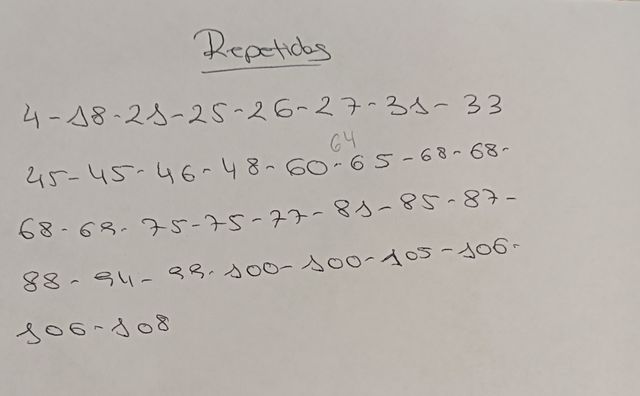 Repetidas
4 - 18 - 21 - 25 - 26 - 27 - 31 - 33
64
45 - 45 - 46 - 48 - 60 - 65 - 68 - 68 -
68 - 69 - 75 - 75 - 77 - 81 - 85 - 87 -
88 - 94 - 99 - 100 - 100 - 105 - 106 -
106 - 108